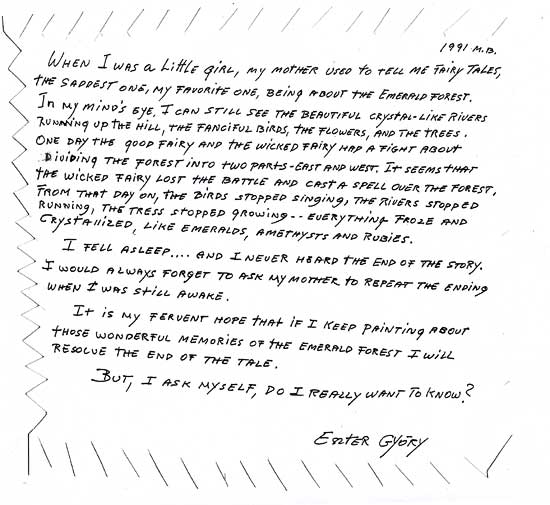 1991 M.B.
WHEN I WAS a Little giRL, my motheR used to teLL me FaiRy TALES,
tHE SADDEST ONE, my FAVORITE ONE, BEING ABOUT the EMERALD FOREST.
IN my MIND'S EYE, I CAN StiLL SEE THE BEAUTIFUL CRYSTAL-LIKE RIVERS
RUNNING UP tHE HILL, tHE FANCIFUL BIRDS, tHE FLOWERS, AND tHE TREES.
ONE DAY tHE good FAIRY AND tHE WICKED FAIRY HAD A FIGHT ABOUT
DiViDING tHE FOREST INTO two PARTS-EAST AND WEST. It SEEMS tHAT
tHE WICKED FAIRY LOST tHE BATTLE AND CAST A SPELL OVER tHE FOREST,
FROM tHAT DAY ON, tHE BIRDS STOPPED SINGING, tHE RIVERS STOPPED
RUNNING, THE TRESS STOPPED gROWING-- EVERYTHING FROZE AND
CRYSTAllIZED, LIKE EMERALDS, AMETHYSTS AND RUBIES.
I FELL ASLEEP.... AND I NEVER HEARD tHE END OF tHE STORY.
I WOULD ALWAYS FORGET TO ASK my MOTHER to REPEAT tHE ENDING
WHEN I WAS StiLL AWAKE.
It is my FERVENT HOPE tHAT iF I KEEP PAINTING ABOUT
tHOSE WONDERFUL MEMORIES OF tHE EMERALD FOREST I WiLL
RESOLVE tHE END OF tHE TALE.
BUT, I ASK MYSELF, DO I REALLY WANT TO KNOW?
ESZTER GYÖRY